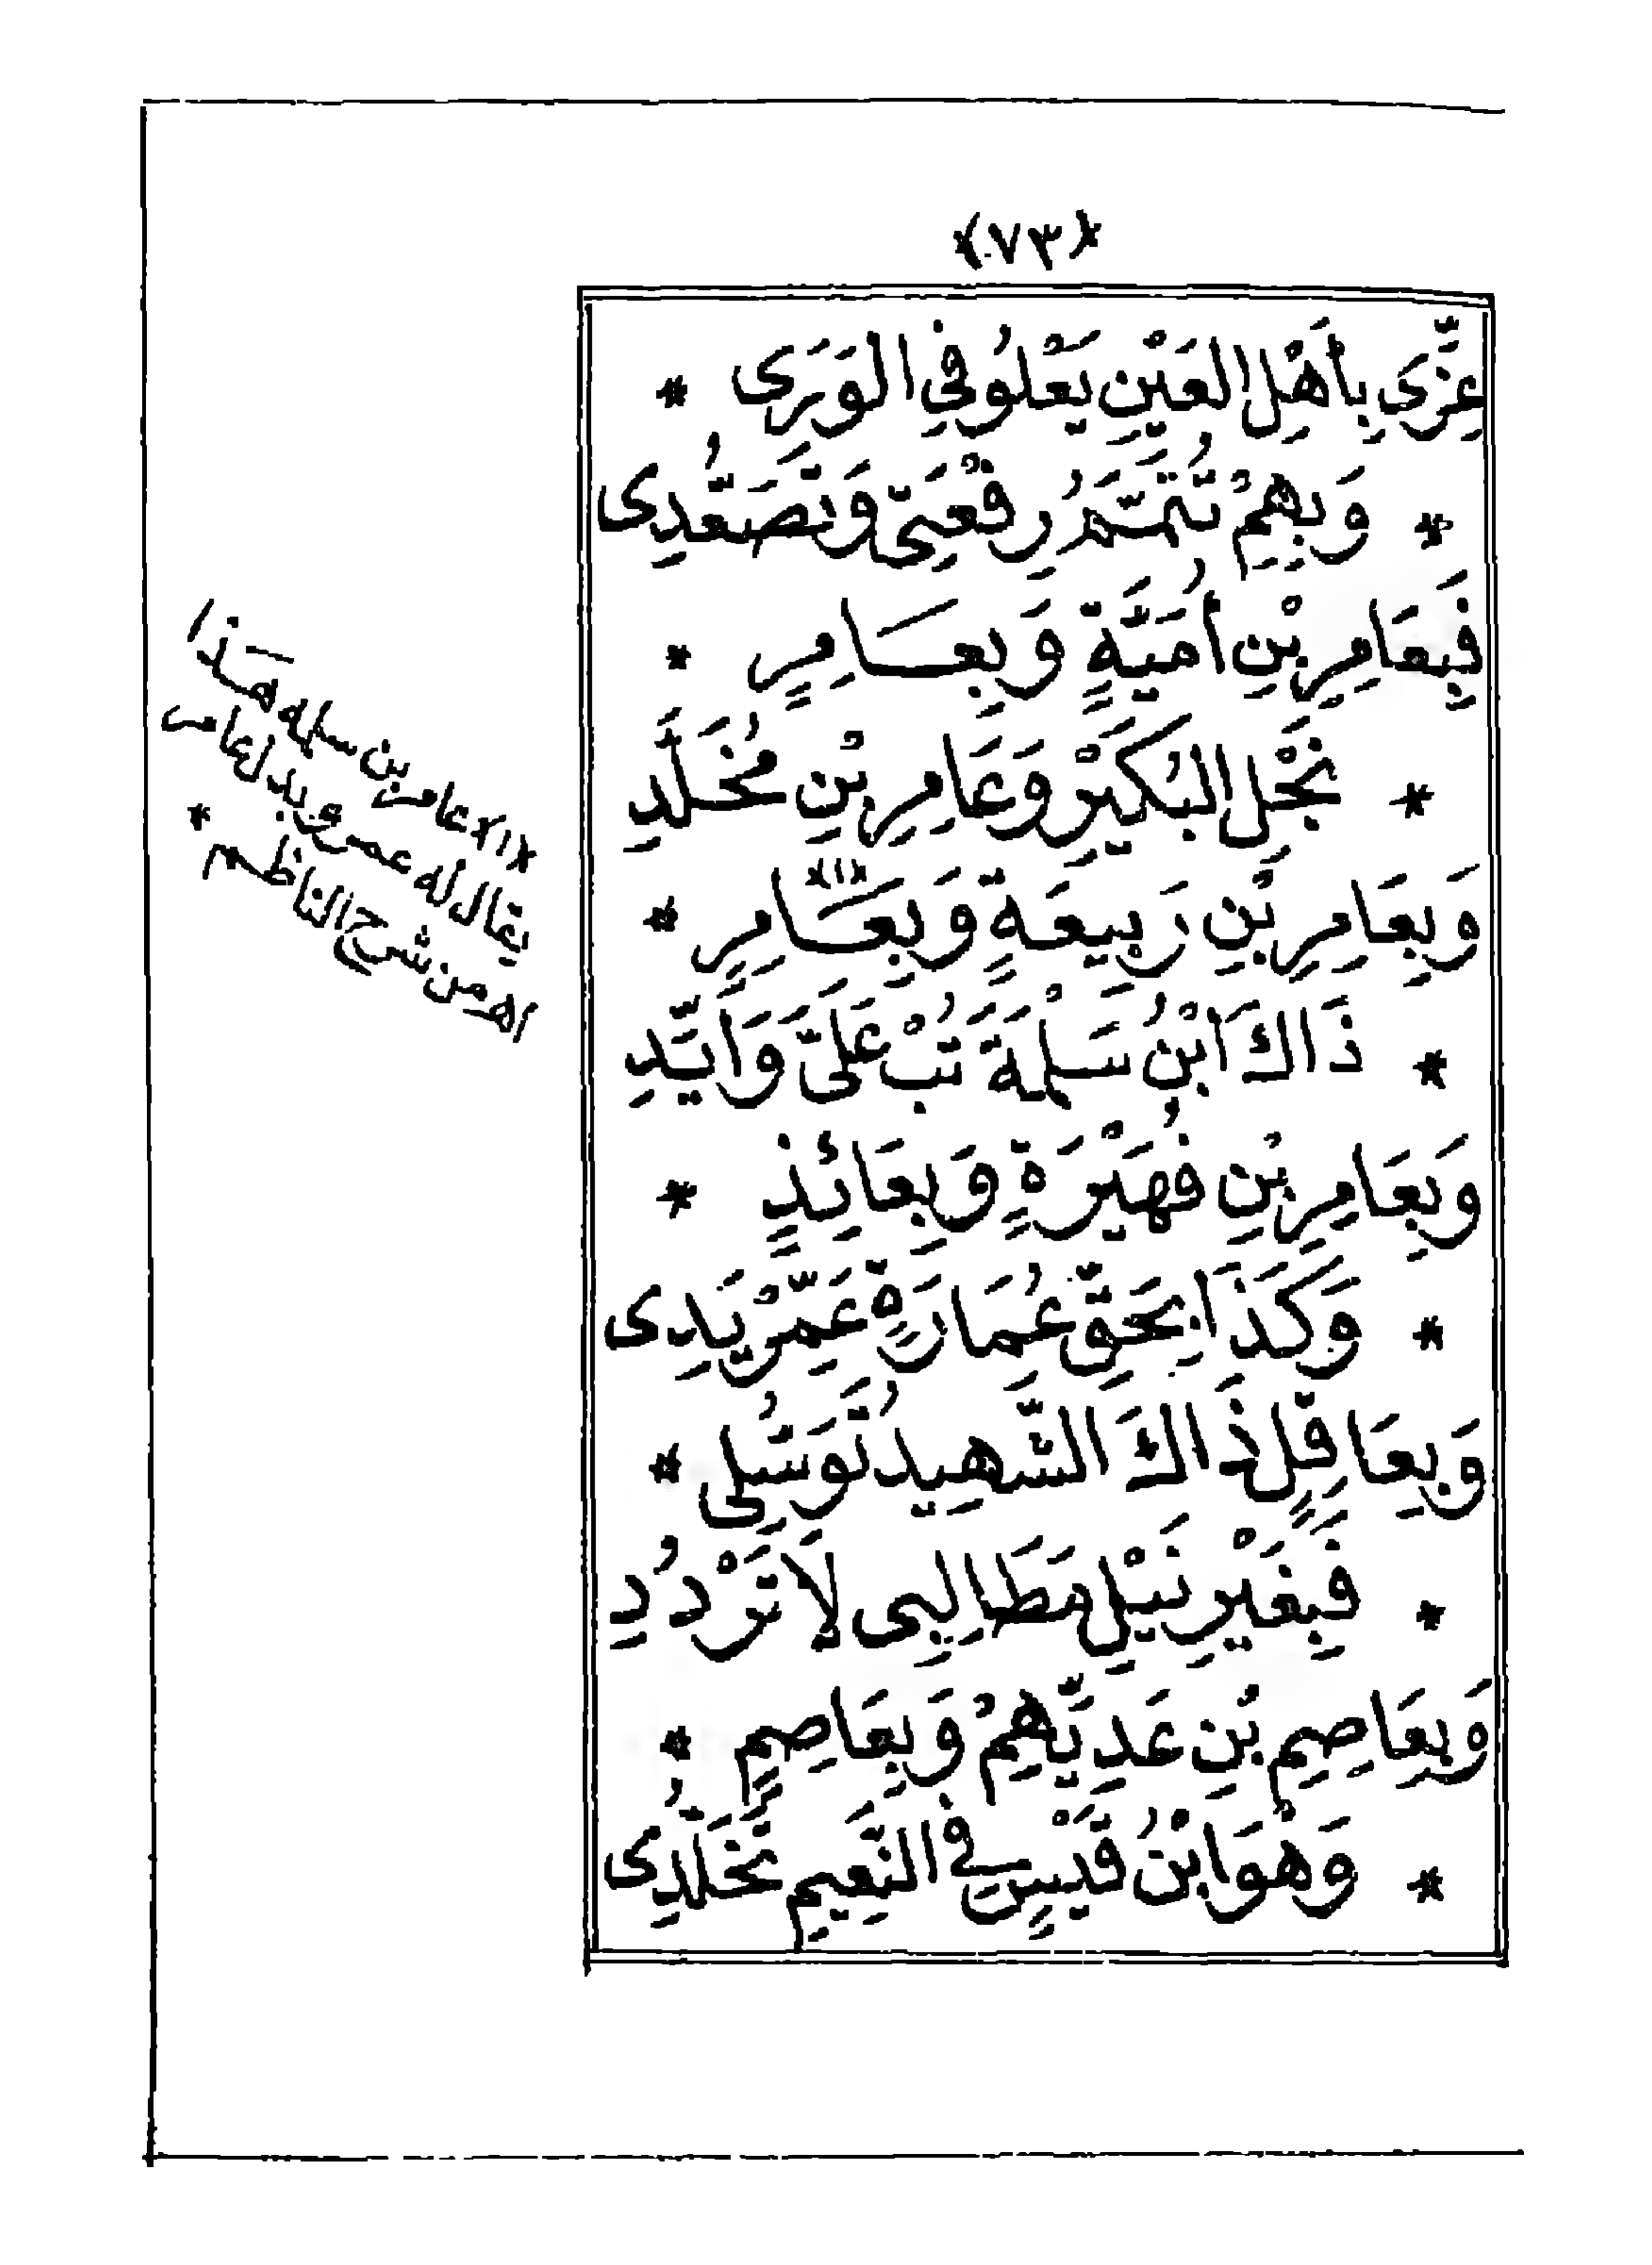 (٧٣)
عِزِّى بِأَهْلِ العَيْنِ يَعْلُو فِى الوَرَى *
* وَبِهِمْ تُتَمَّمُ رِفْعَتِى وَتَصَعُّدِى
فَبِعَامِرِ بْنِ أُمَيَّةٍ وَبِعَامِرٍ *
* نَجْلِ البُكَيْرِ وَعَامِرِ بْنِ مُخَلَّدِ
وَبِعَامِرِ بْنِ رَبِيعَةٍ وَبِعَامِرٍ (١) *
* ذَاكَ ابْنُ سَلْمَةَ تُبْ عَلَىَّ وَأَيِّدِ
وَبِعَامِرِ بْنِ فُهَيْرَةٍ وَبِعَائِذٍ *
* وَكَذَا بِحَقِّ عُمَارَةٍ عَمِّرْ يَدِى
وَبِعَاقِلٍ ذَاكَ الشَّهِيدُ تَوَسُّلِى *
* فَبِغَيْرِ نَيْلِ مَطَالِبِى لَا تَرْدُدِ
وَبِعَاصِمِ بْنِ عَدِيِّهِمْ وَبِعَاصِمٍ *
* وَهْوَ ابْنُ قَيْسٍ فِى النَّعِيمِ تَخَلُّدِى
(١) عامر بن سلمه هذا
يقال له عمرو بدل عامر
اهـ من شرح الناظم *